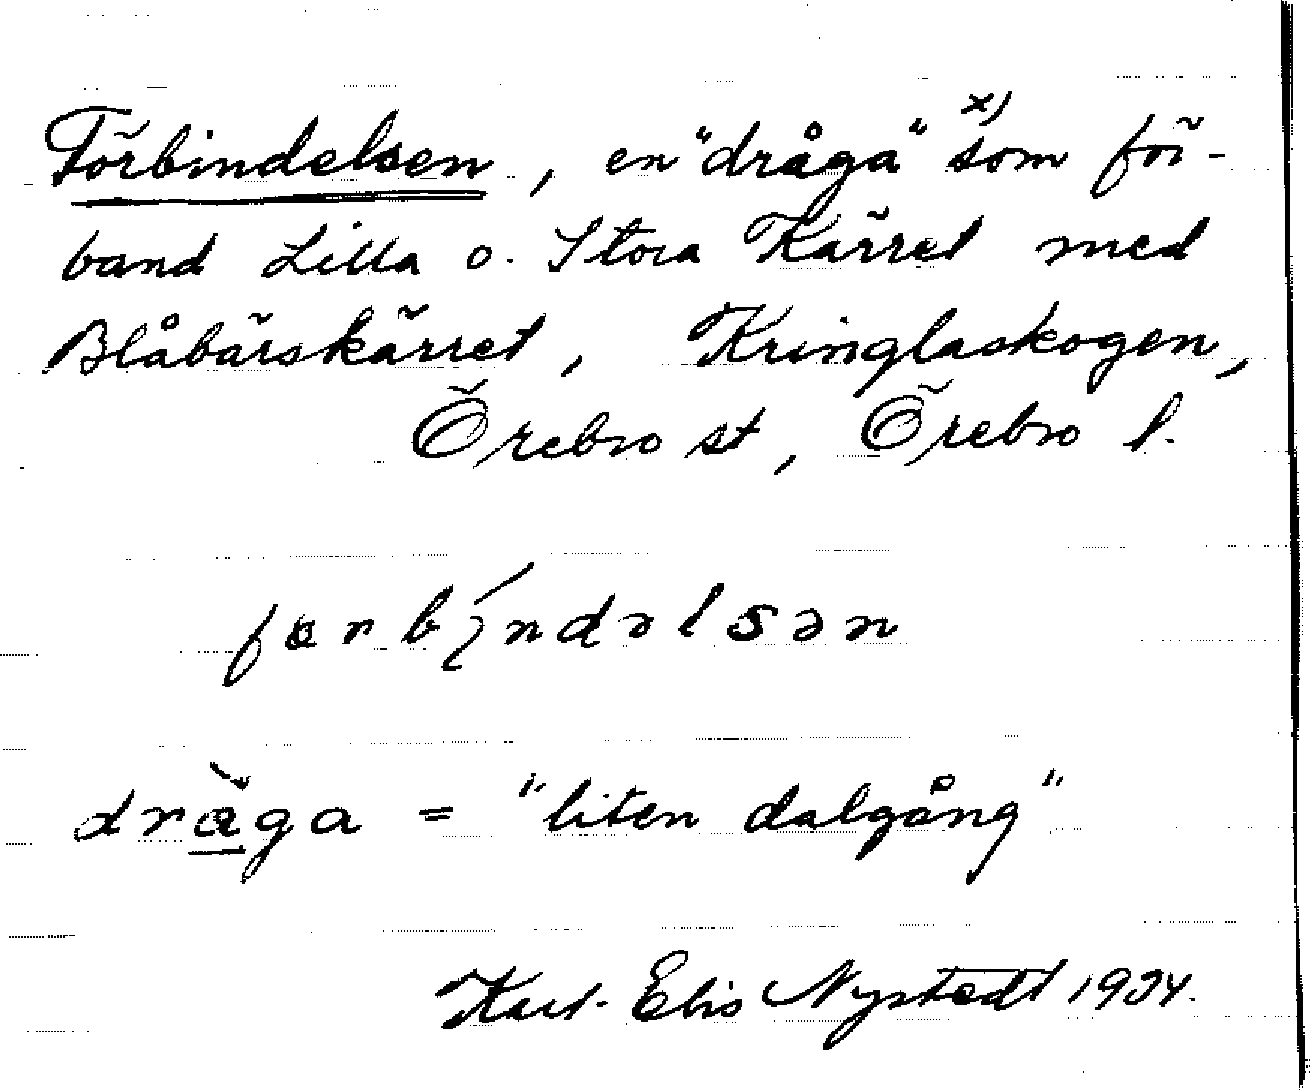 Förbindelsen, en "dråga" x) som för-
band Lilla o. Stora Kärret med
Blåbärskärret, Kringlaskogen,
Örebro st, Örebro l.
fərbíndəlsən
dràga = "liten dalgång"
Karl-Elis Nystedt 1934.